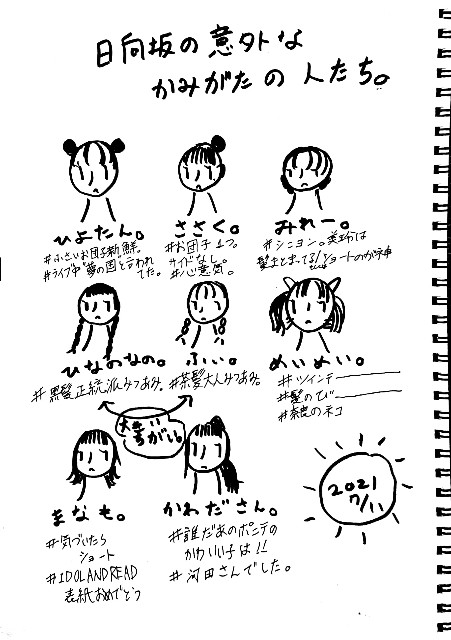 日向坂の意外な
かみがたの人たち。
ひよたん。
#ふさいお団子新鮮。
#ライブ中"夢の国と言われ
てた。
ささく。
#お団子1つ。
サイドなし。
#心意気。
みれー。
#シニヨン。美玲は
髪まとまってる!ショートの
ひなのなの。
#黒髪正統派みつあみ。
ふぃ。
#茶髪大人みつあみ。
めいめい。
#ツインテー
#髪のびー
#奈良のネコ
大きい
ちがい。
まなも。
#気づいたら
ショート
#IDOLANDREAD
表紙おめでとう
かわださん。
#誰だあのポニテの
かわいい子は!!
#河田さんでした。
2021
7/11